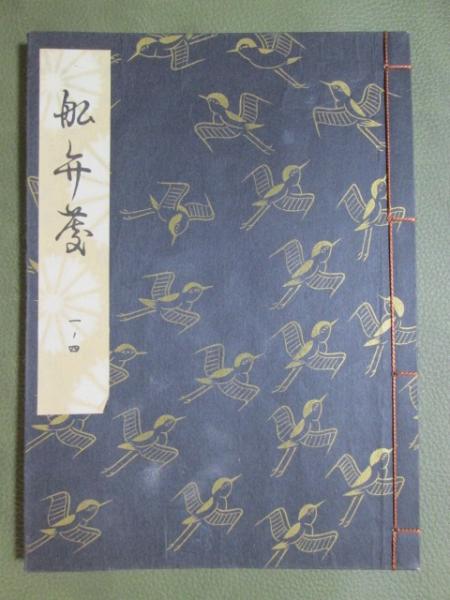 舩弁慶
一ノ四